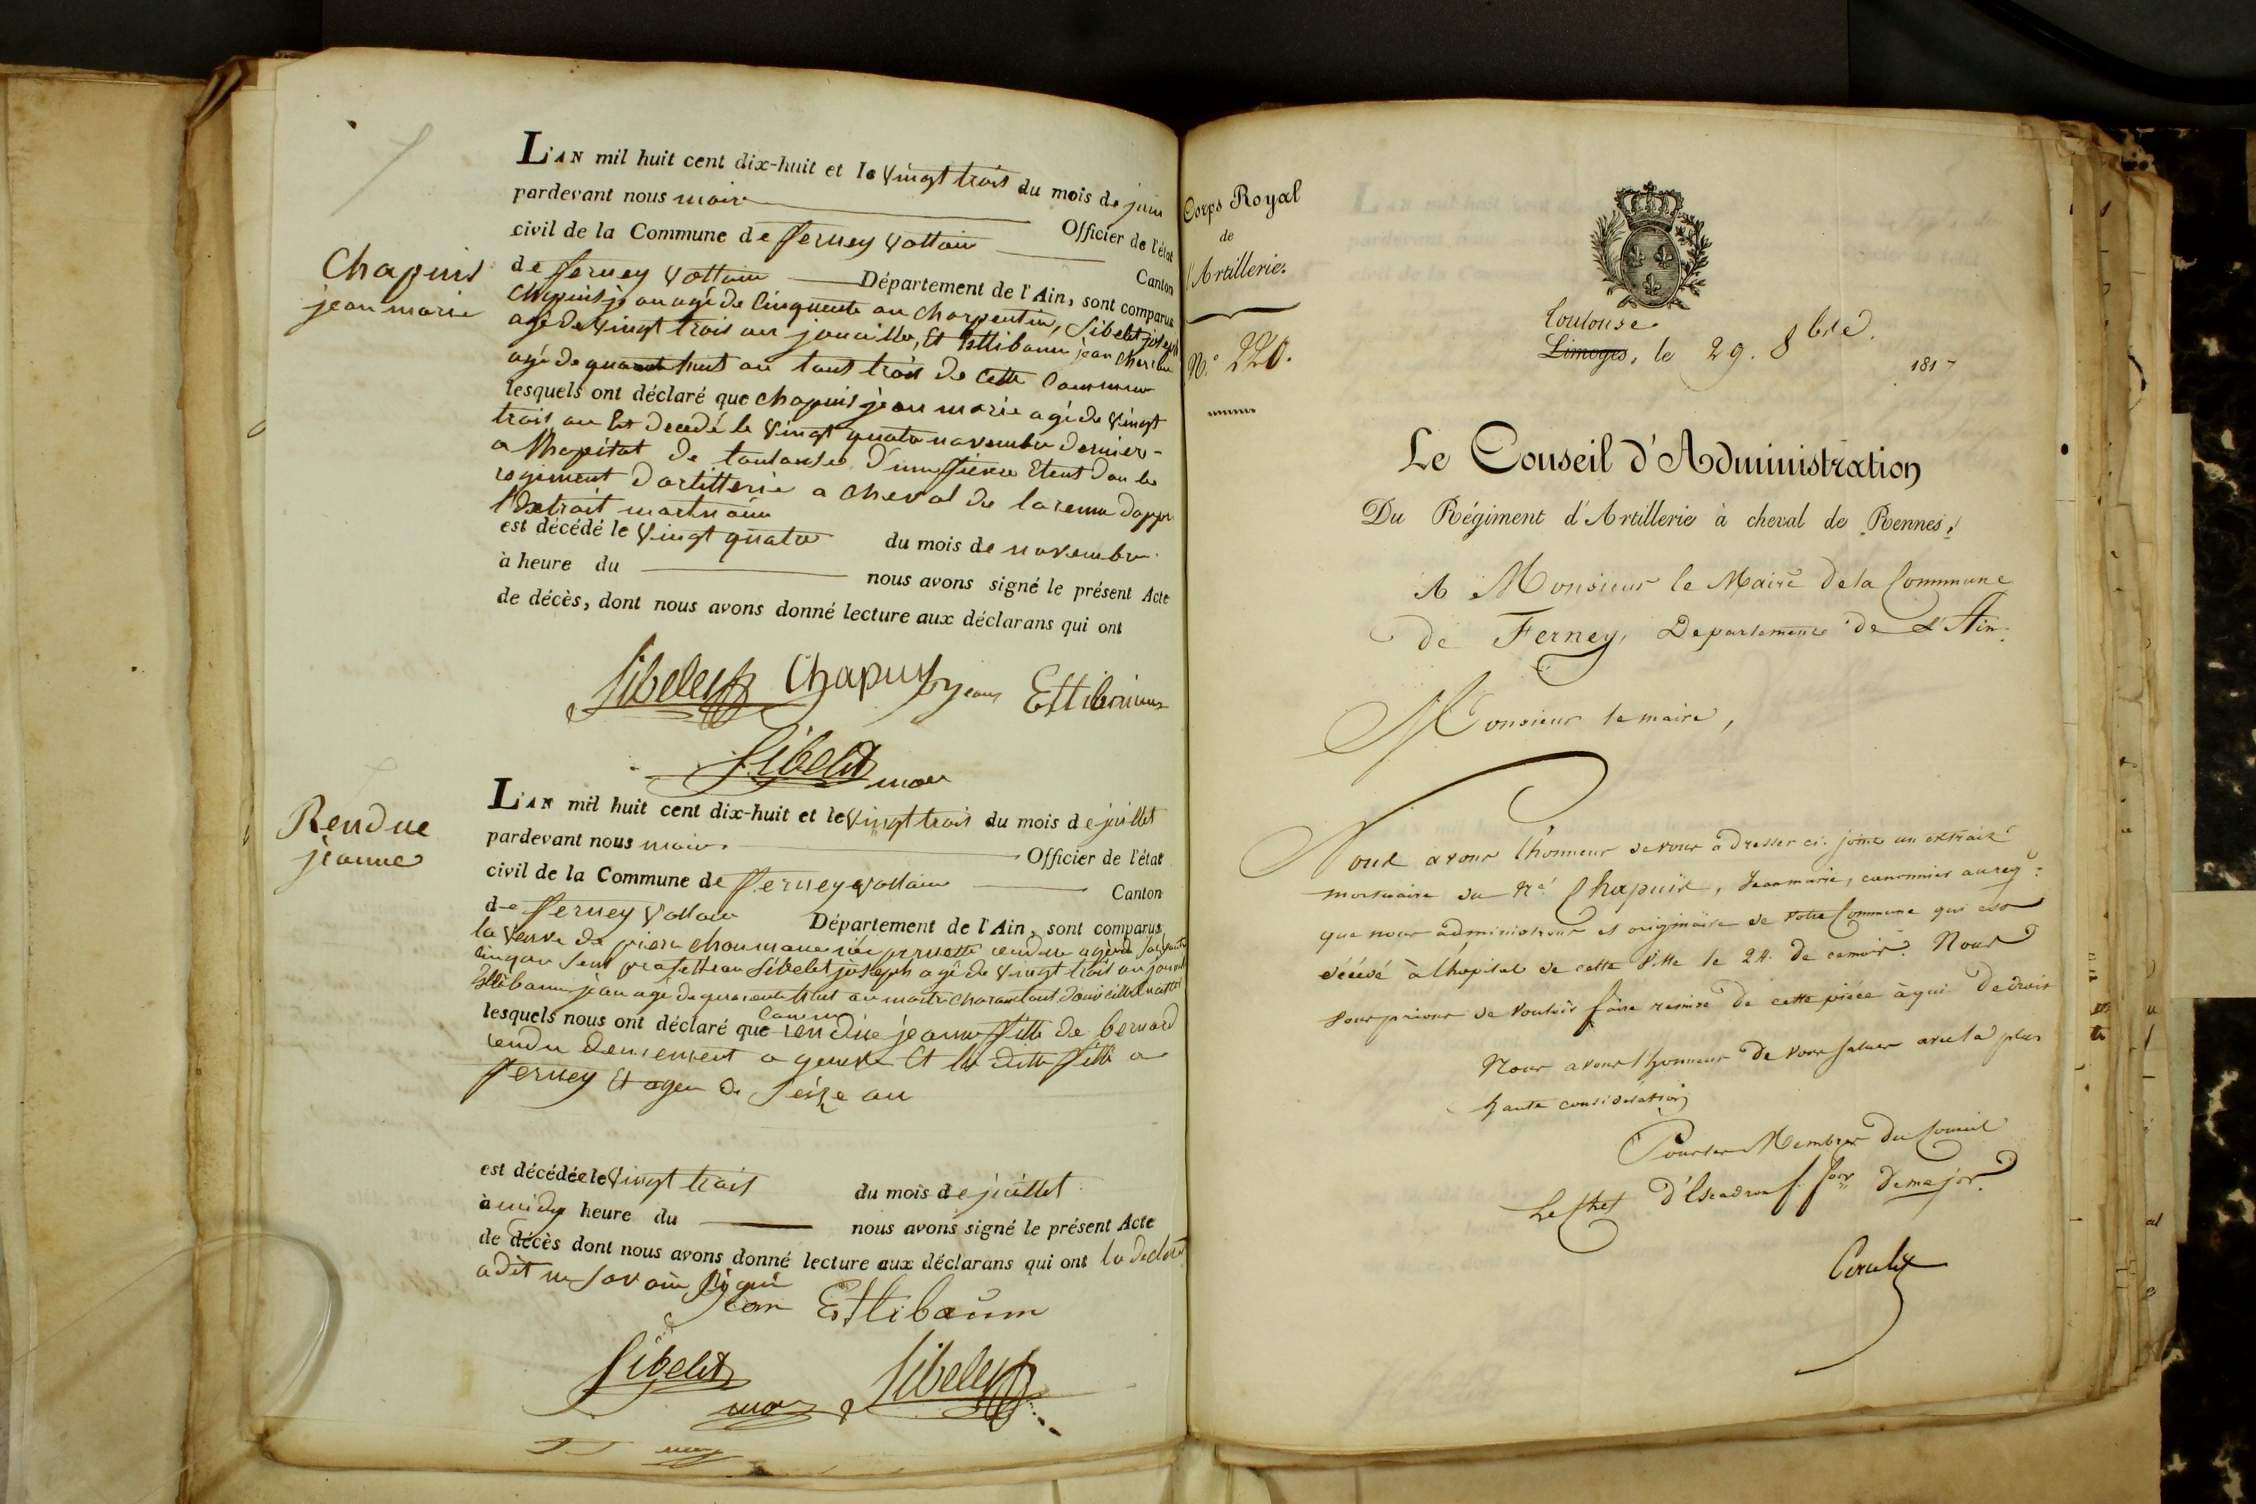 Chapuis
jean marie
L'AN mil huit cent dix-huit et le vingt trois du mois de juin
pardevant nous maire Officier de l'état
civil de la Commune de ferney voltair Canton
de ferney voltaire Département de l'Ain, sont comparus
chapuis jean agé de Cinquente an charpentier, Sibelet joseph
agé de vingt trois an jouaillier, Et Ettibaum jean
agé de quarante huit an tout trois de cette Commune
lesquels ont déclaré que chapuis jean marie agé de vingt
trois an Est decedé le vingt quatre novembre dernier
a l'hopital de toulouse d'une fièvre Etent dan le
regiment d'artillerie a cheval de la renne dappr
l'Extrait mortuaire
est décédé le vingt quatre du mois de novembre
à heure du nous avons signé le présent Acte
de décès, dont nous avons donné lecture aux déclarans qui ont
Sibelet Chapuis jean Ettibaum
Sibelet maire
Rendue
jeanne
L'AN mil huit cent dix-huit et le vingt trois du mois de juillet
pardevant nous maire Officier de l'état
civil de la Commune de ferney voltaire Canton
de ferney voltaire Département de l'Ain, sont comparus
la veuve de pierre née pernette rendue agée de
cinq an Sibelet joseph agé de vingt trois an
Ettibaum jean agé de quarante huit an
lesquels nous ont déclaré que comme rendüe jeanne fille de bernard
rendu a geneve Et la ditte fille a
ferney Et agee de seize an
est décédée le vingt trois du mois de juillet
à midy heure du nous avons signé le présent Acte
de décès dont nous avons donné lecture aux déclarans qui ont la
a dit ne savoir signé
Jean Ettibaum
Sibelet maire Sibelet
Corps Royal
de
l'Artillerie.
N.° 220.
Toulouse
Limoges, le 29. 8bre. 1817
Le Conseil d'Administration
Du Régiment d'Artillerie à cheval de Rennes,
A Monsieur le Maire de la Commune
de Ferney, Departement de l'Ain.
Monsieur le maire,
Nous avons l'honneur de vous adresser ci-joint un extrait
mortuaire du né Chapuis, Jean marie, canonnier au reg.t
que nous administrons et originaire de votre Commune qui est
décédé à l'hopital de cette Ville le 24. de ce mois. Nous
vous prions de vouloir faire remise de cette pièce à qui de droit
Nous avons l'honneur de vous saluer avec la plus
haute consideration
Pour les Membres du Conseil
Le Chef d'Escadron f. fon de major